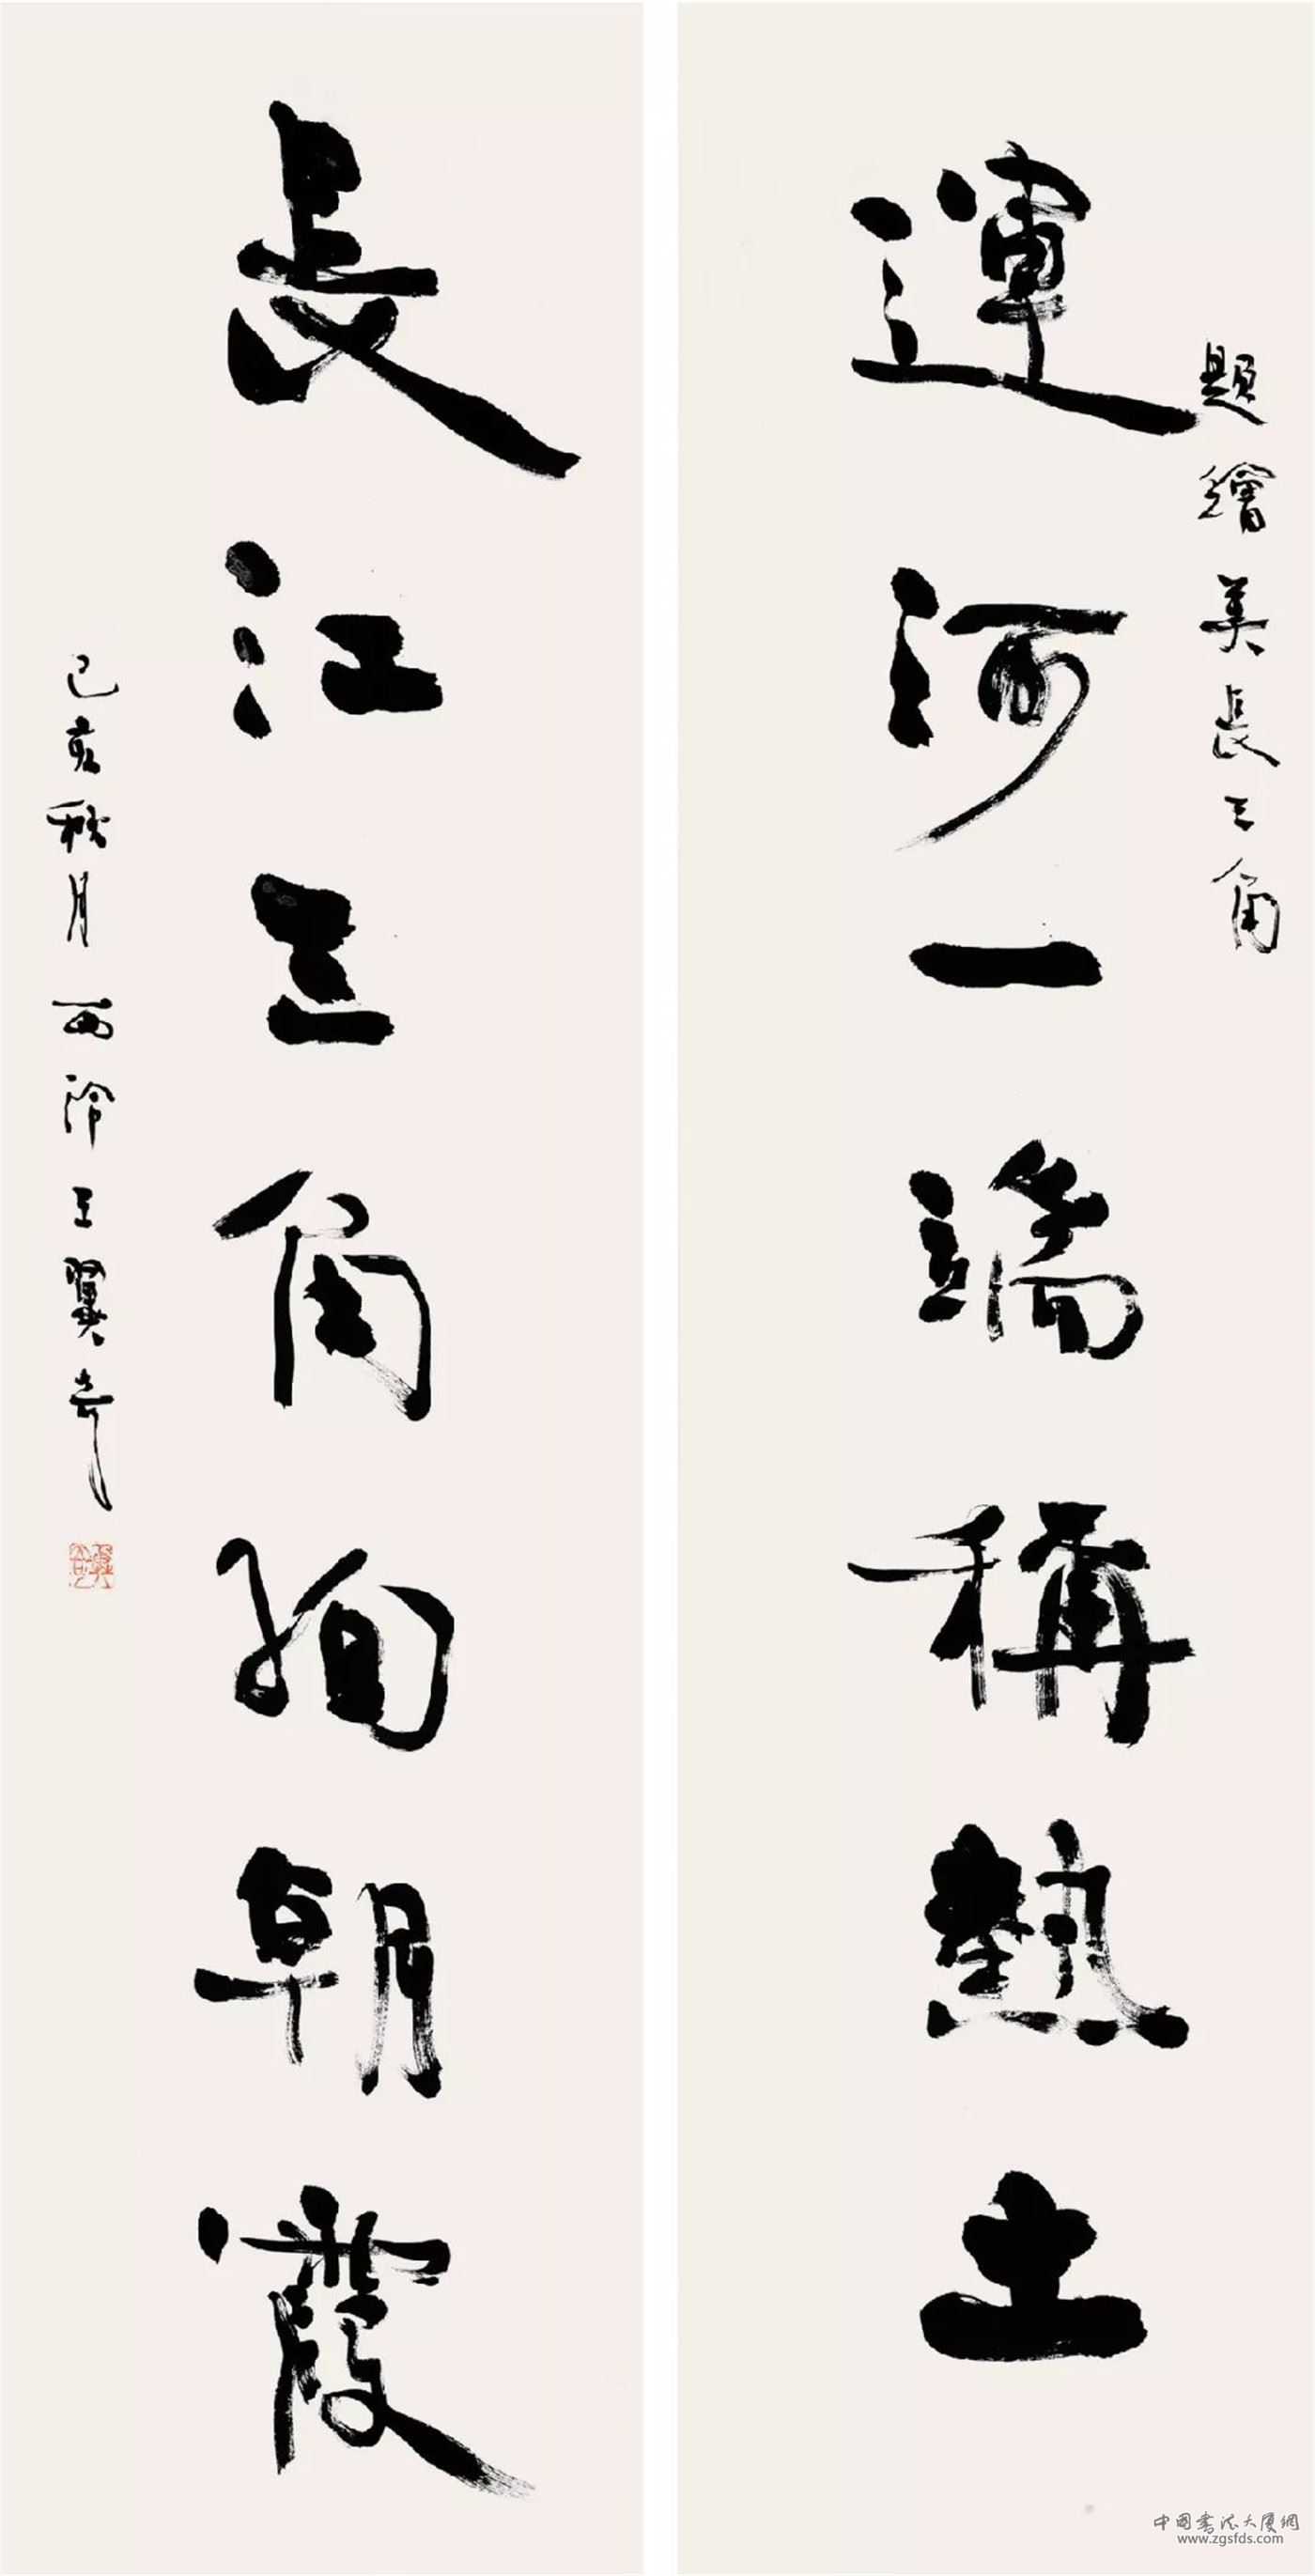 題繪美長三角
運河一端稱熱土
長江三角絢朝霞
己亥秋月西泠王翼奇
中国书法大厦網
www.zgsfds.com